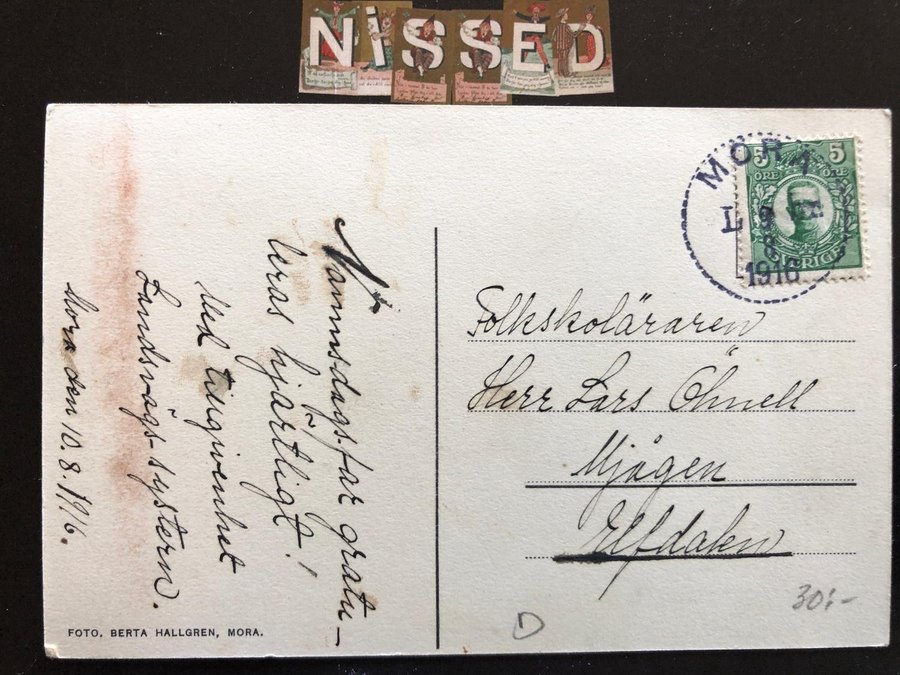 NiSSED
MORA
L
1916
5 5
ÖRE ÖRE
SVERIGE
Namnsdagsfar gratu-
leras hjärtligt!
Med tillgivenhet
Landsvägs-systern.
Mora den 10.8.1916.
Folkskoläraren
Herr Lars Öhnell
Mjågen
Elfdalen
30:-
D
FOTO. BERTA HALLGREN, MORA.